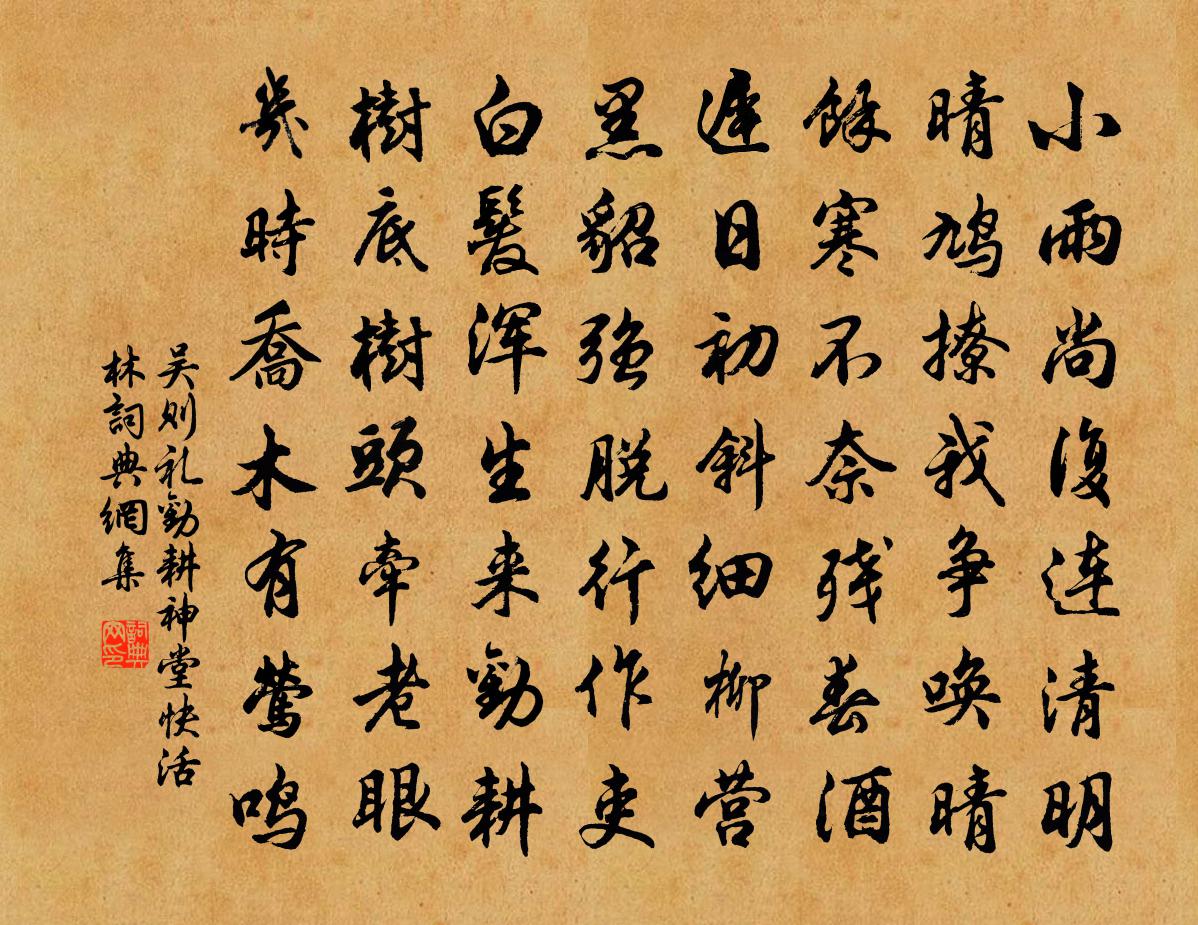 小雨尚復连清明
晴鸠撩我争唤晴
餘寒不奈残春酒
遲日初斜细柳营
黑貂強脱行作吏
白髮浑生来勸耕
樹底樹頭牵老眼
幾時喬木有莺鳴
吴则礼勸耕神堂快活
林詞典網集
詞典
网印